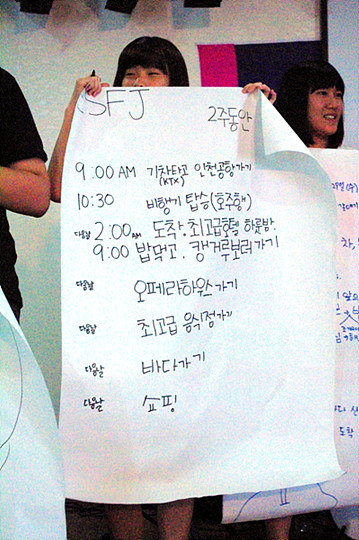 ISFJ
2주동안
9:00AM 기차타고 인천공항가기
(KTX)
10:30 비행기 탑승(호주행)
다음날 2:00AM 도착, 최고급호텔 하룻밤.
9:00 밥먹고, 캥거루보러가기
다음날 오페라하우스가기
다음날 최고급 음식점가기
다음날 바다가기
다음날 쇼핑